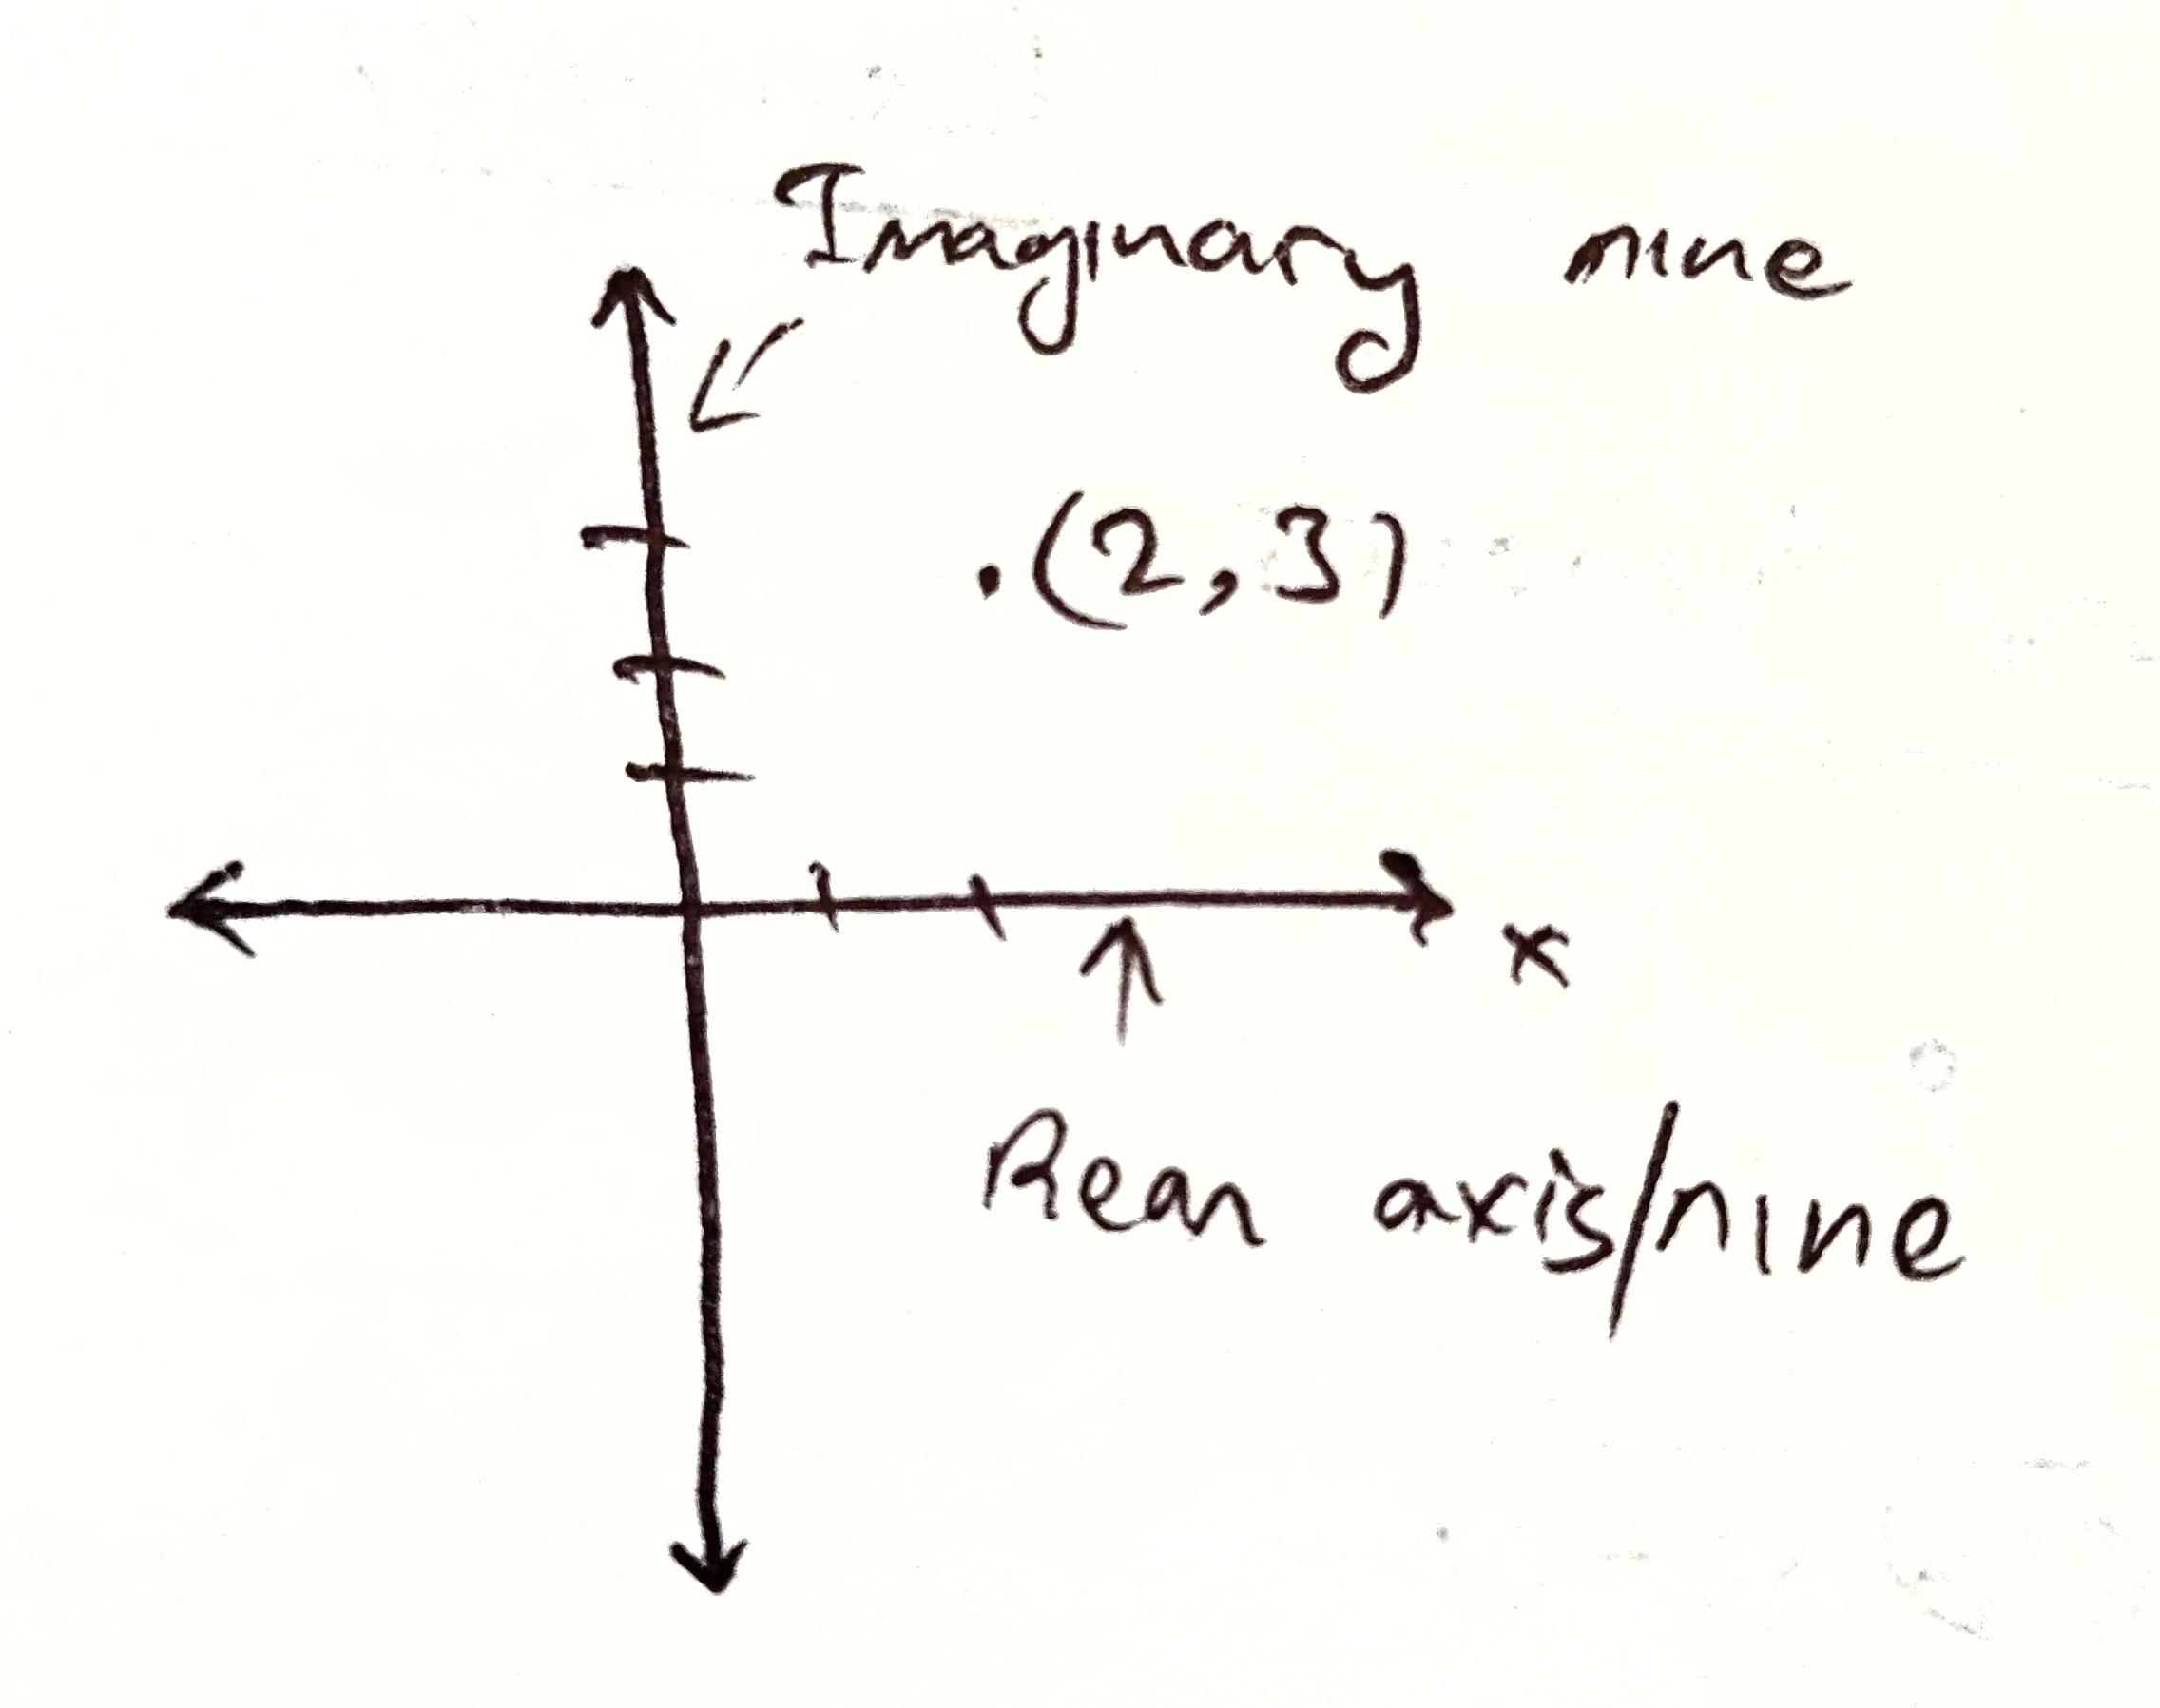 Imaginary nine
.(2,3)
x
Rean axis/nine